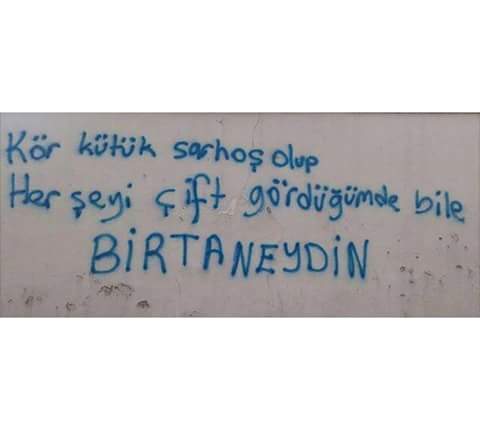 Kör kütük sarhoş olup
Her şeyi çift gördüğümde bile
BİRTANEYDİN